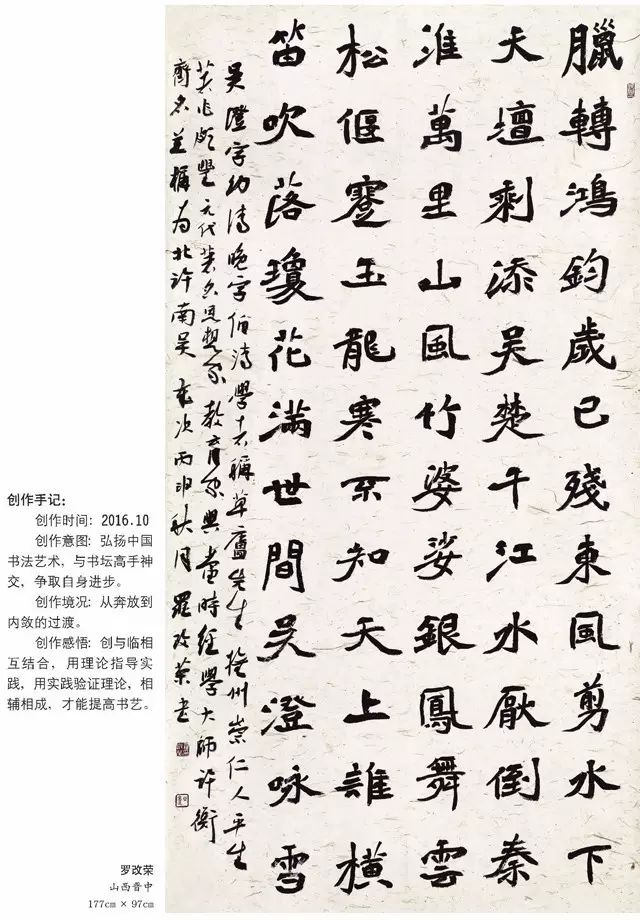 臘轉鴻鈞歲已殘東風剪水下
天壇剩添吳楚千江水厭倒秦
淮萬里山風竹婆娑銀鳳舞雲
松偃蹇玉龍寒不知天上誰橫
笛吹落瓊花滿世間吳澄咏雪
吳澄字幼清晚字伯清學稱草廬先生撫州崇仁人平生
作頗豐元代著名思想家教育家與當時經學大師许衡
齊名並稱为北许南吴歲次丙申秋月羅改荣书
创作手记：
创作时间：2016.10
创作意图：弘扬中国
书法艺术，与书坛高手神
交，争取自身进步。
创作境况：从奔放到
内敛的过渡。
创作感悟：创与临相
互结合，用理论指导实
践，用实践验证理论，相
辅相成，才能提高书艺。
罗改荣
山西晋中
177cm × 97cm